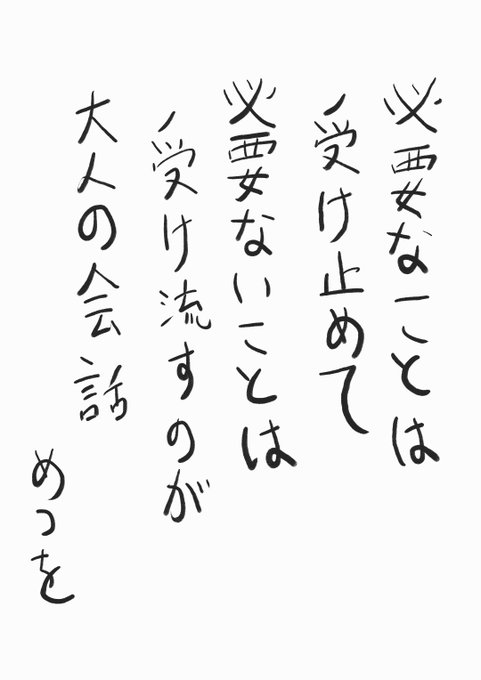 必要なことは
受け止めて
必要ないことは
受け流すのが
大人の会話
めつを